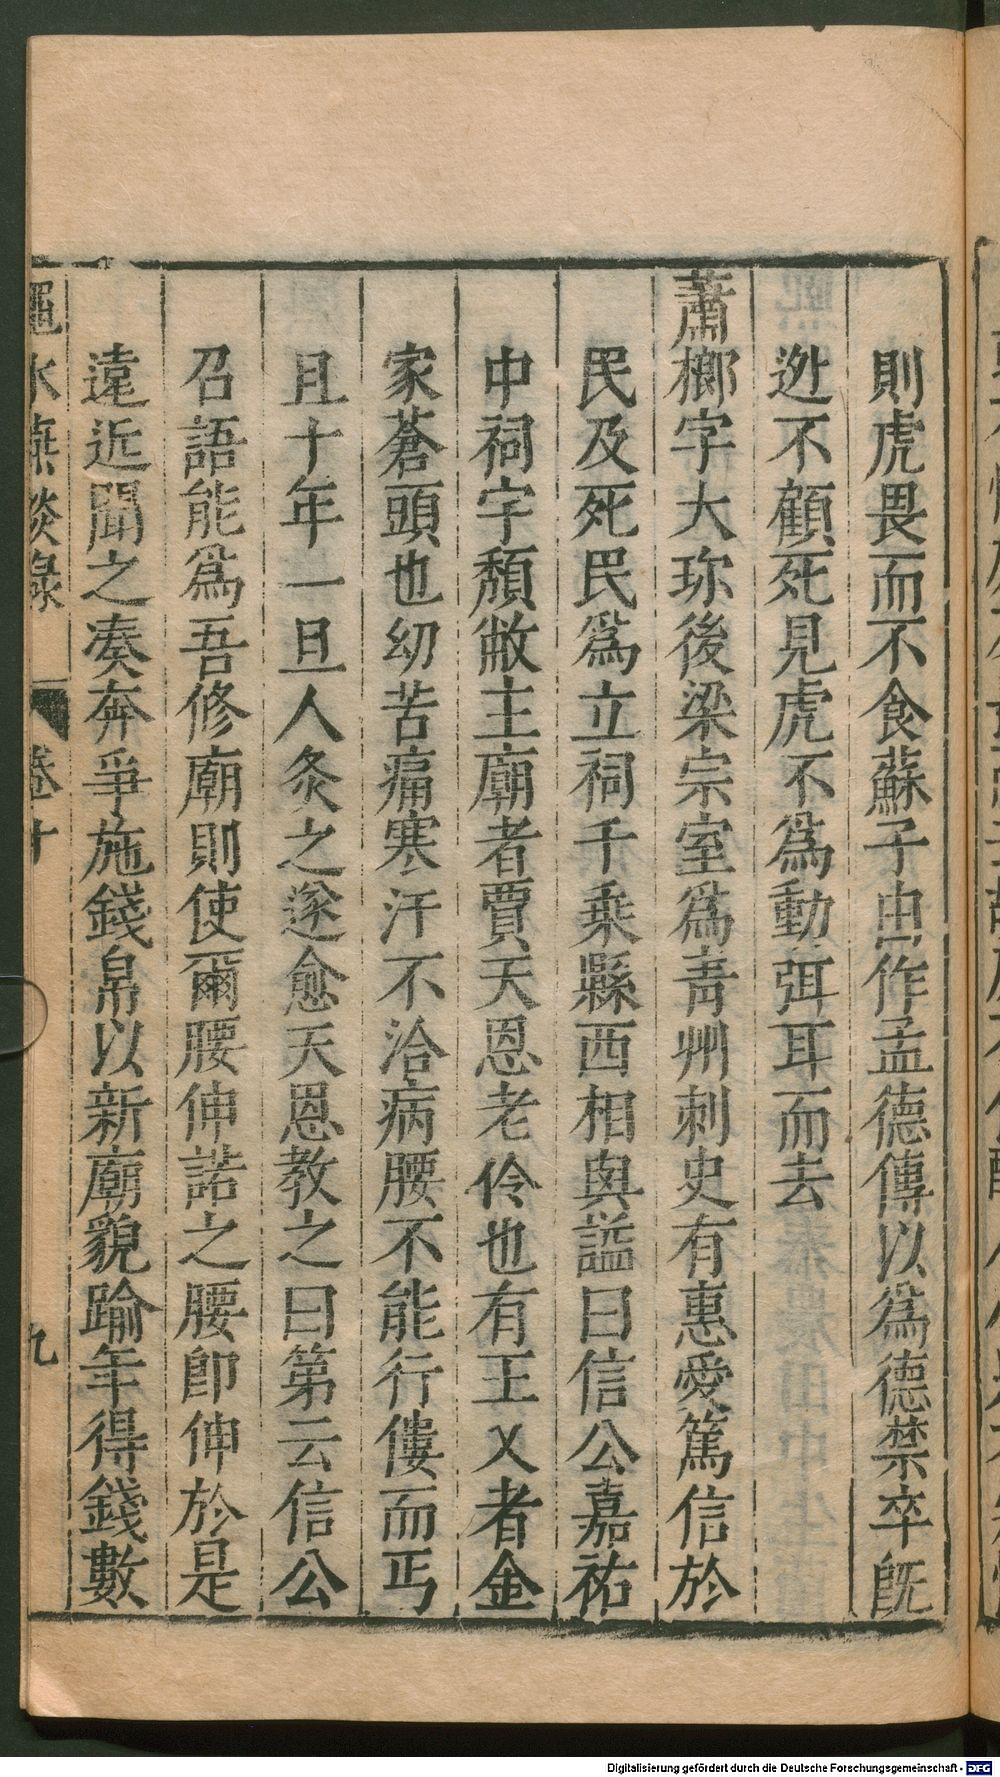 則虎畏而不食蘇子由作孟德傳以為德禁卒旣
迯不顧死見虎不為動弭耳而去
蕭櫛字大珎後梁宗室為青州刺史有惠愛篤信於
民及死民為立祠千乗縣西相與謚曰信公嘉祐
中祠宇頽敝主廟者賈天恩老伶也有王乂者金
家蒼頭也幼苦痛寒汗不洽病腰不能行僂而丐
且十年一旦人灸之遂愈天恩教之曰第云信公
召語能為吾修廟則使爾腰伸諾之腰即伸於是
遠近聞之奏奔爭施錢帛以新廟貌踰年得錢數
澠水燕談錄 卷十 九
Digitalisierung gefördert durch die Deutsche Forschungsgemeinschaft - DFG